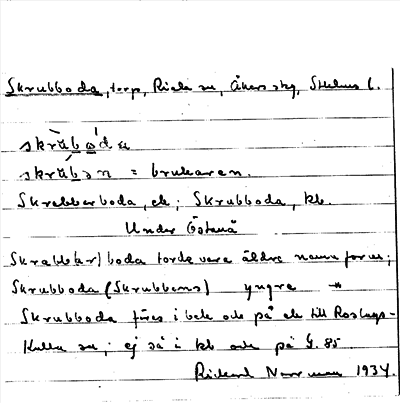 Skrubboda, torp, Riala sn, Åkers skg, Sthlms l.
skrùbó̱da
skrúbən = brukaren.
Skrabberboda, ek; Skrubboda, kb.
Under Östanå
Skrabb(er)boda torde vara äldre namnform;
Skrubboda (Skrubbens) yngre
Skrubboda föres i bok och på ek till Roslags-
Kulla sn; ej så i kb och på G. 85
Rickard Norrman 1934.